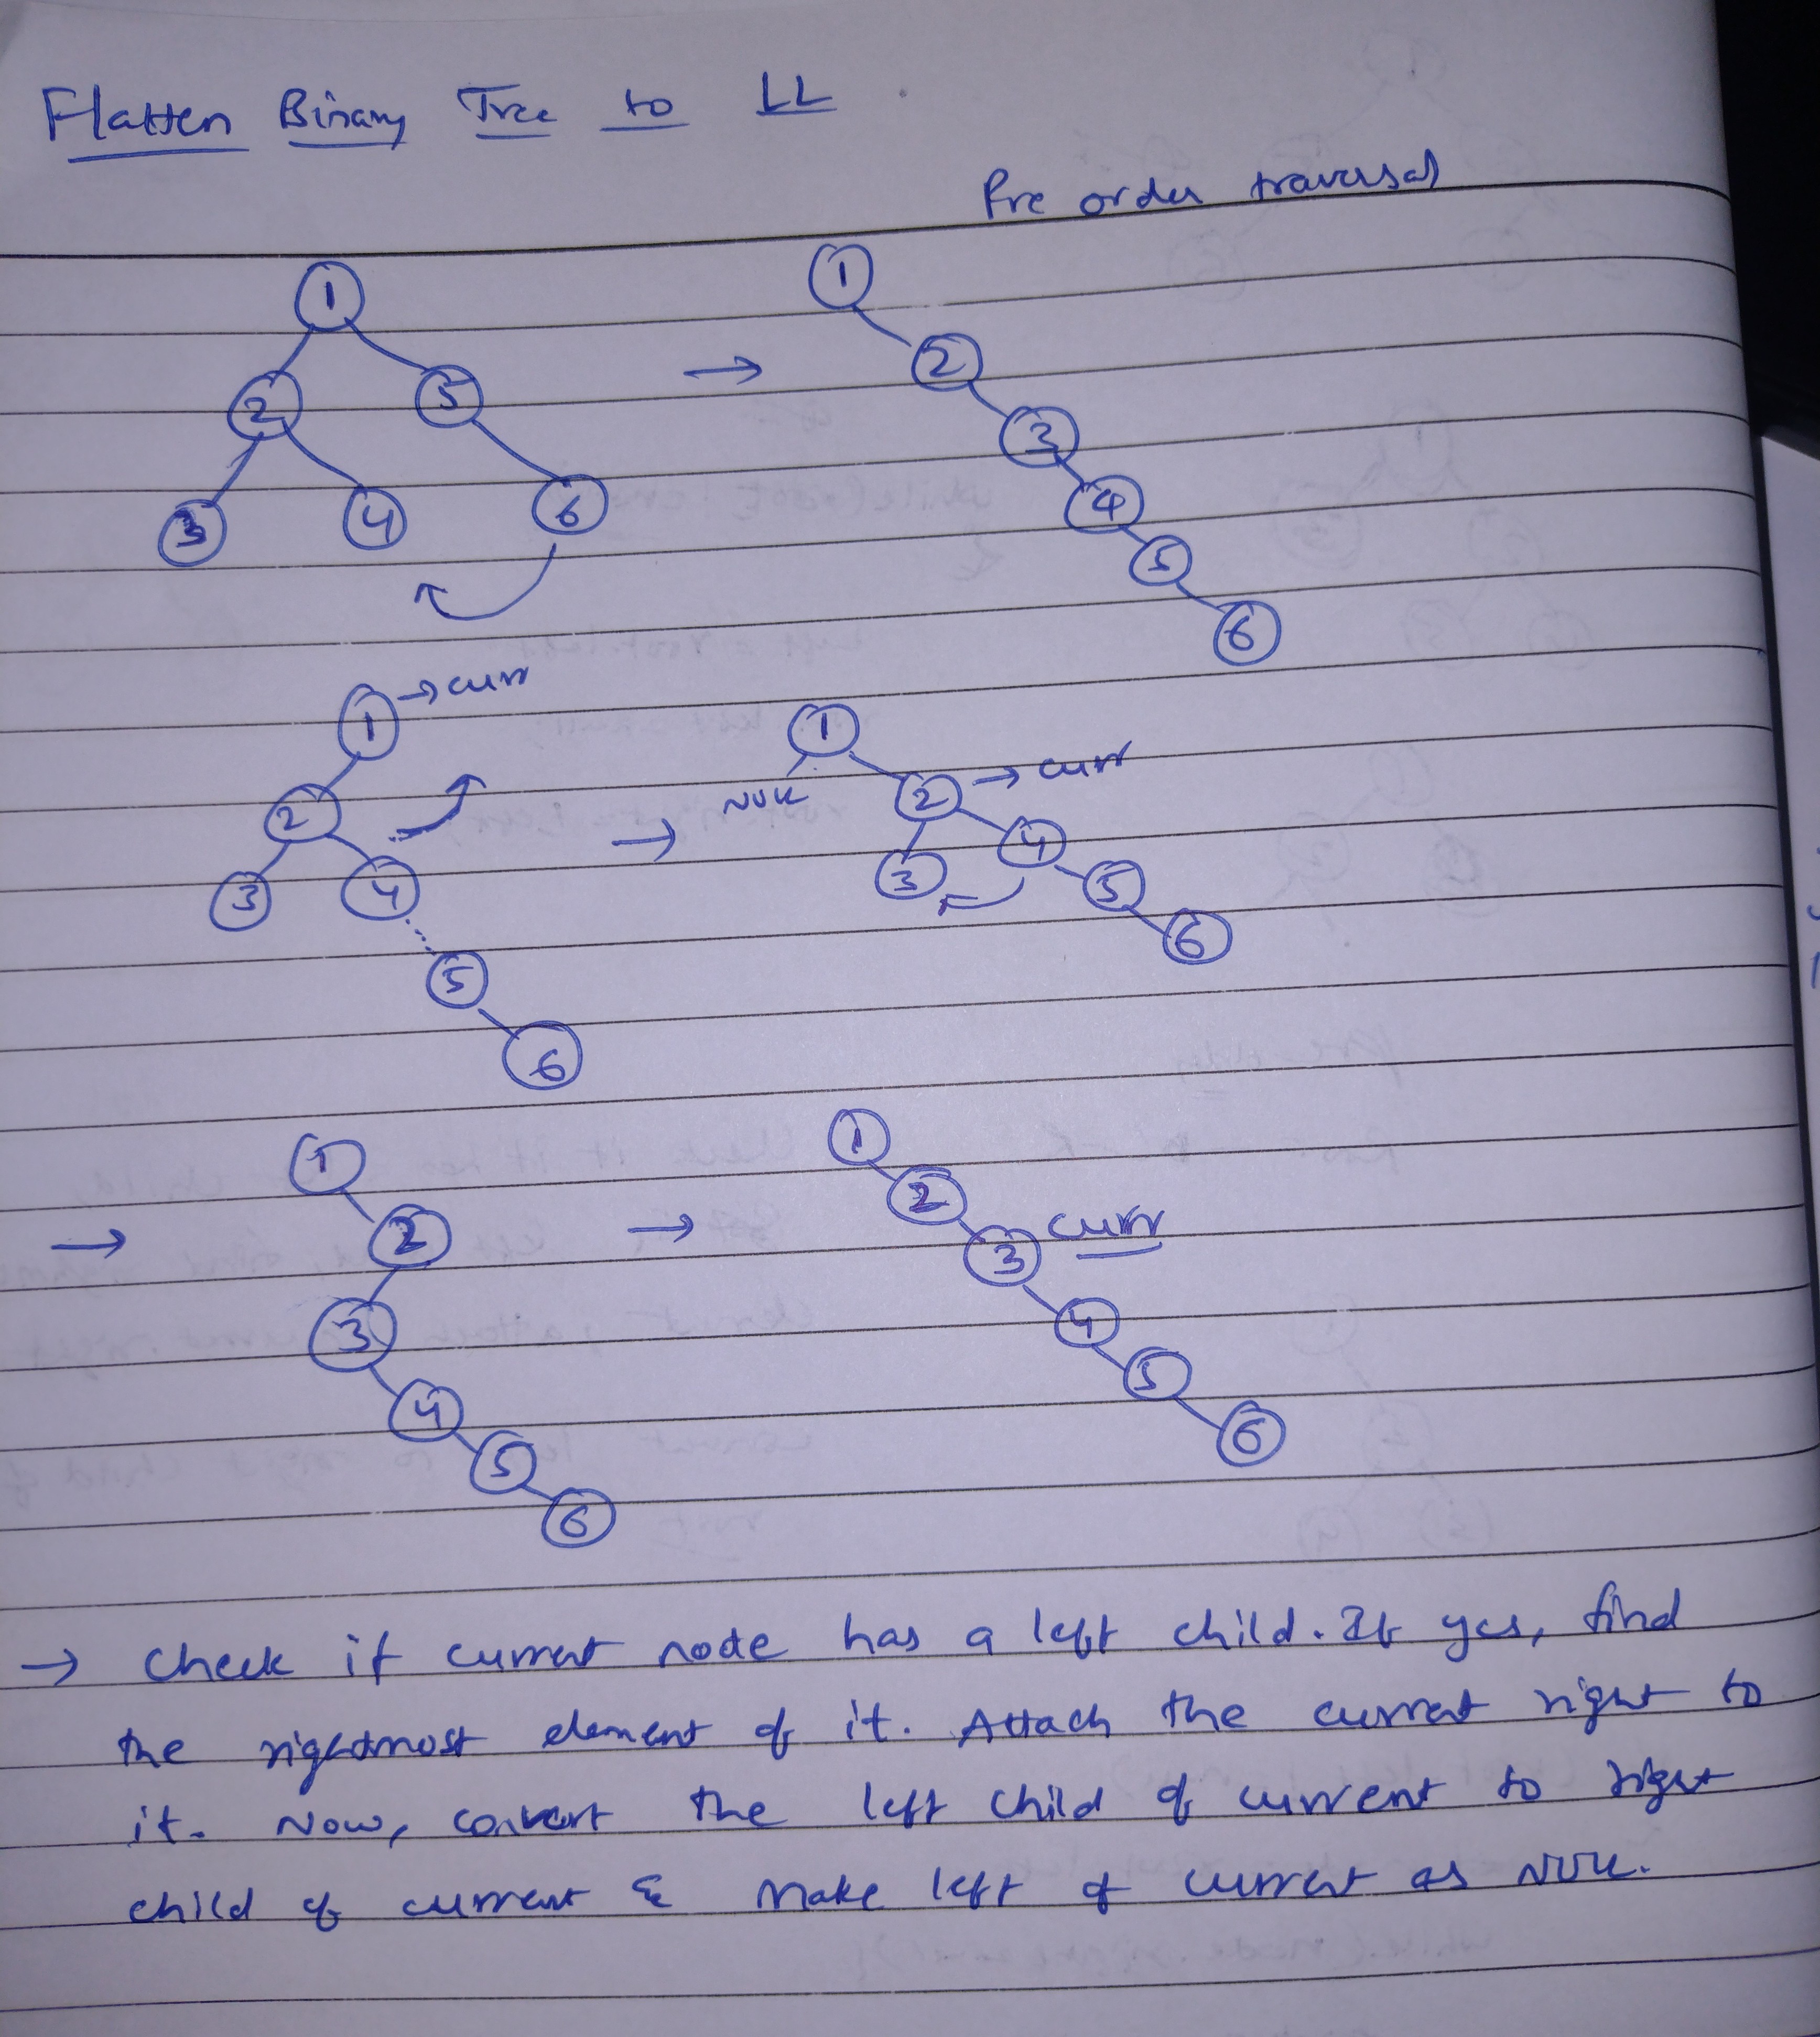 Flatten Binary Tree to LL
Pre order traversal
1 → 1
2 5 2
3 4 6 3
4
5
6
1 → curr 1
2 → NULL 2 → curr
3 4 3 4 5
5 6
6
1 1
→ 2 → 2
3 3 curr
4 4
5 5
6 6
→ Check if current node has a left child. If yes, find
the rightmost element of it. Attach the current right to
it. Now, convert the left child of current to right
child of current & Make left of current as NULL.